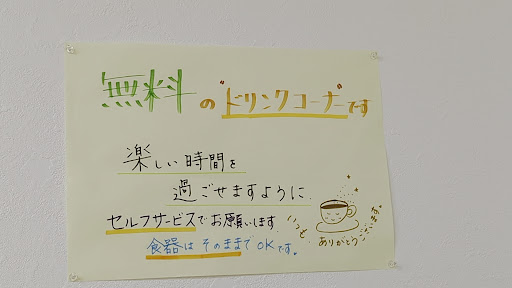 無料の"ドリンクコーナー"です
楽しい時間を
過ごせますように
セルフサービスでお願いします
食器はそのままでOKです。
いつも
ありがとうございます。